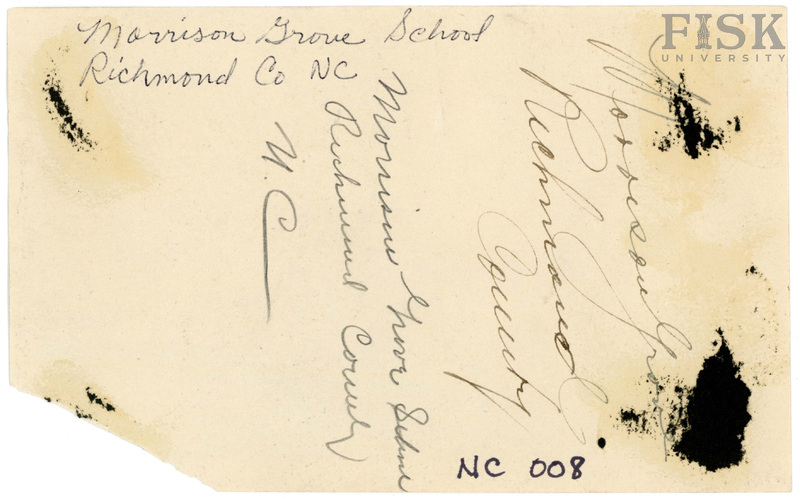 Morrison Grove School
Richmond Co NC
FISK
UNIVERSITY
Morrison Grove
Richmond
County
Morrison Grove School
Richmond County
N.C
NC 008